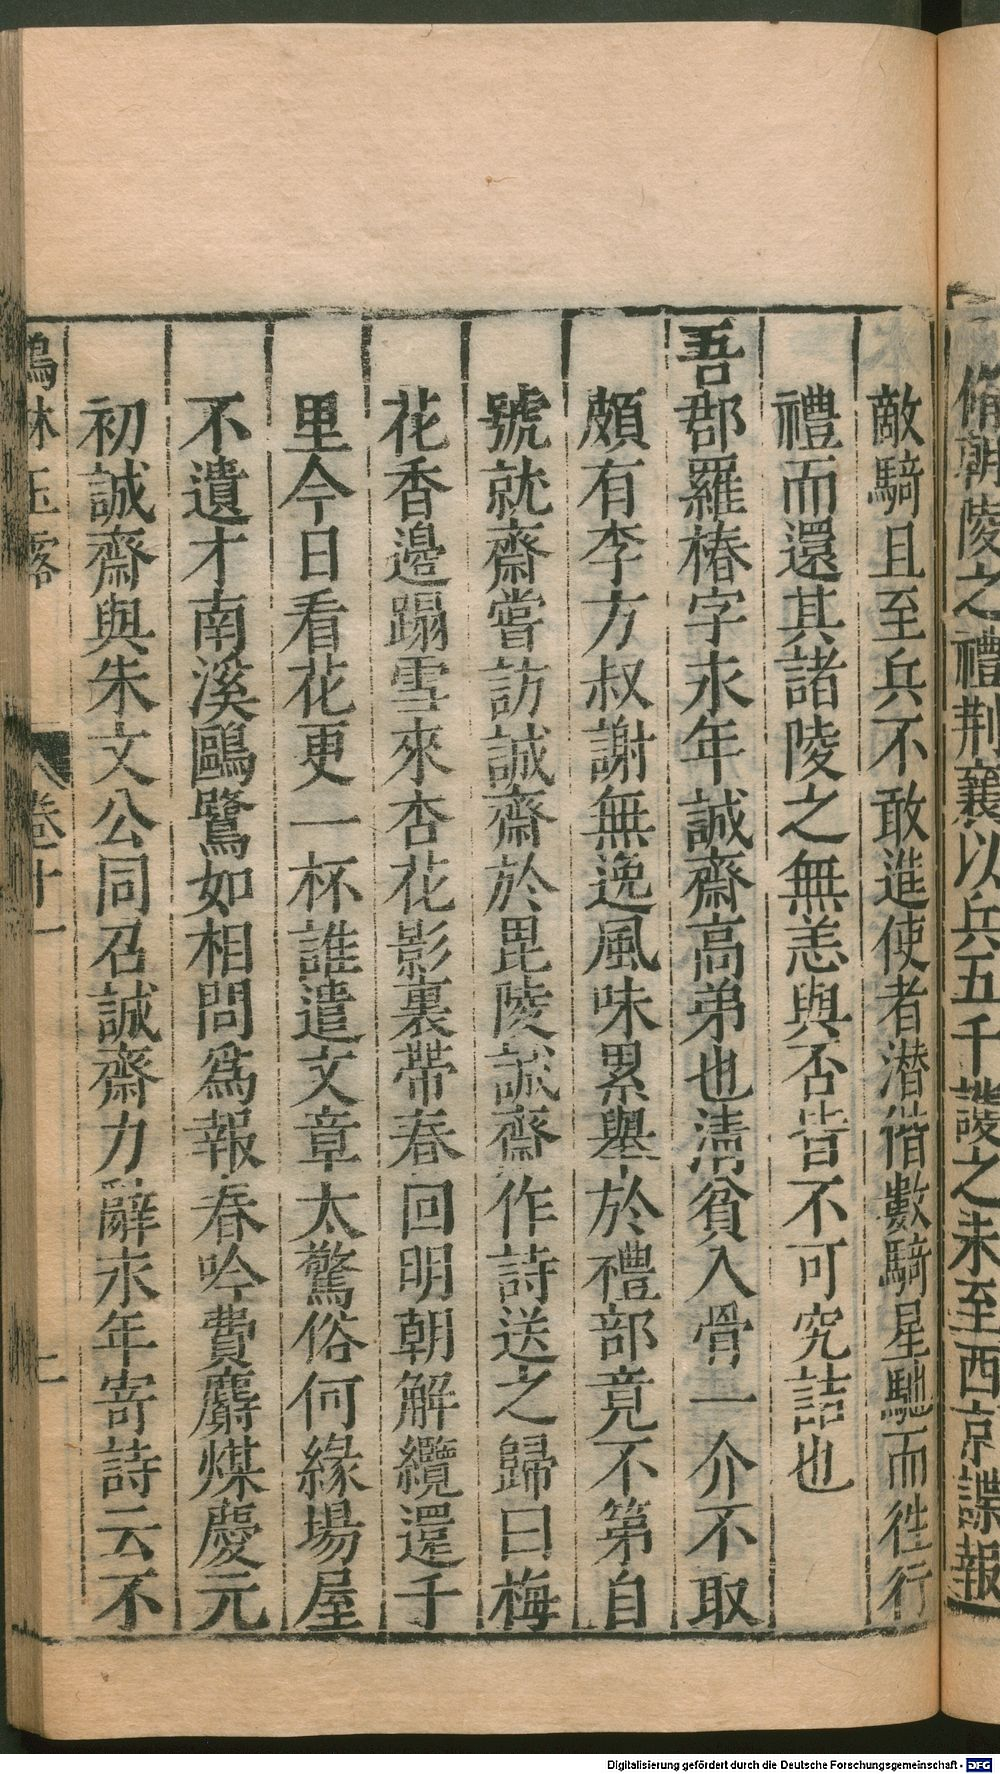 脩朝陵之禮荆襄以兵五千護之未至西京諜報
敵騎且至兵不敢進使者潜偕數騎星馳而徃行
禮而還其諸陵之無恙與否皆不可究詰也
吾郡羅椿字永年誠齋高弟也清貧入骨一介不取
頗有李方叔謝無逸風味累舉於禮部竟不第自
號就齋嘗訪誠齋於毘陵誠齋作詩送之歸曰梅
花香邊蹋雪來杏花影裏帶春回明朝解纜還千
里今日看花更一杯誰遣文章太驚俗何緣場屋
不遺才南溪鷗鷺如相問爲報春吟費麝煤慶元
初誠齋與朱文公同召誠齋力辭永年寄詩云不
鶴林玉露 卷十一 上
Digitalisierung gefördert durch die Deutsche Forschungsgemeinschaft - DFG